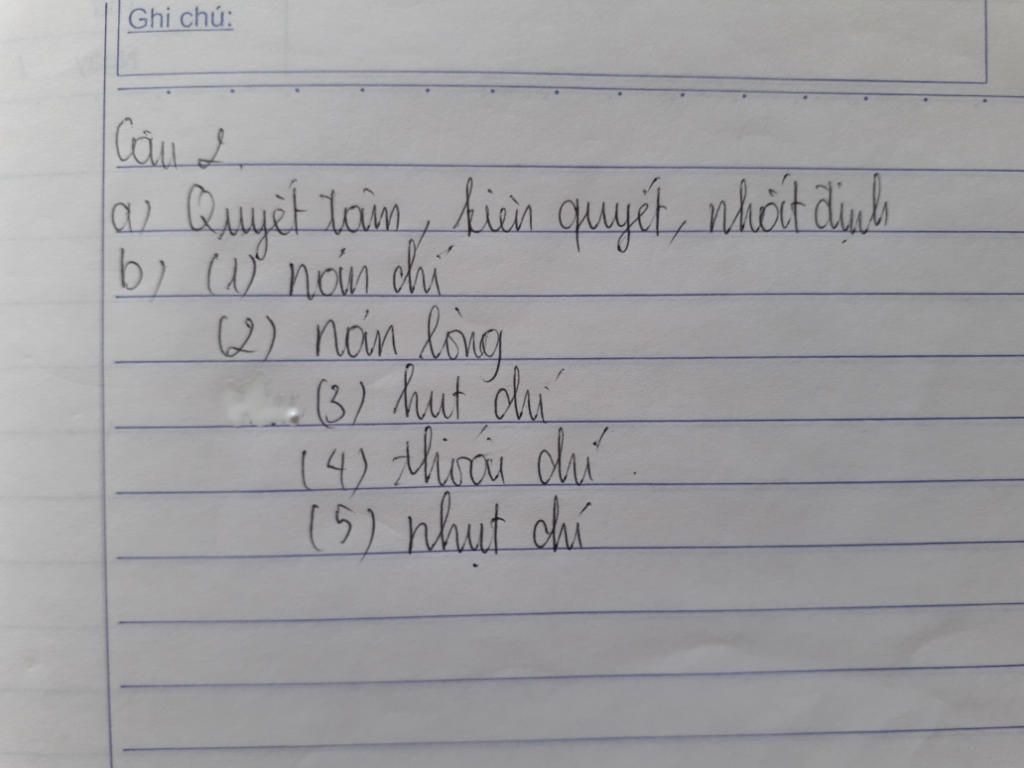 Ghi chú:
Câu 2.
a) Quyết tâm, kiên quyết, nhất định
b) (1) nản chí
(2) nản lòng
(3) hụt chí
(4) thoái chí.
(5) nhụt chí